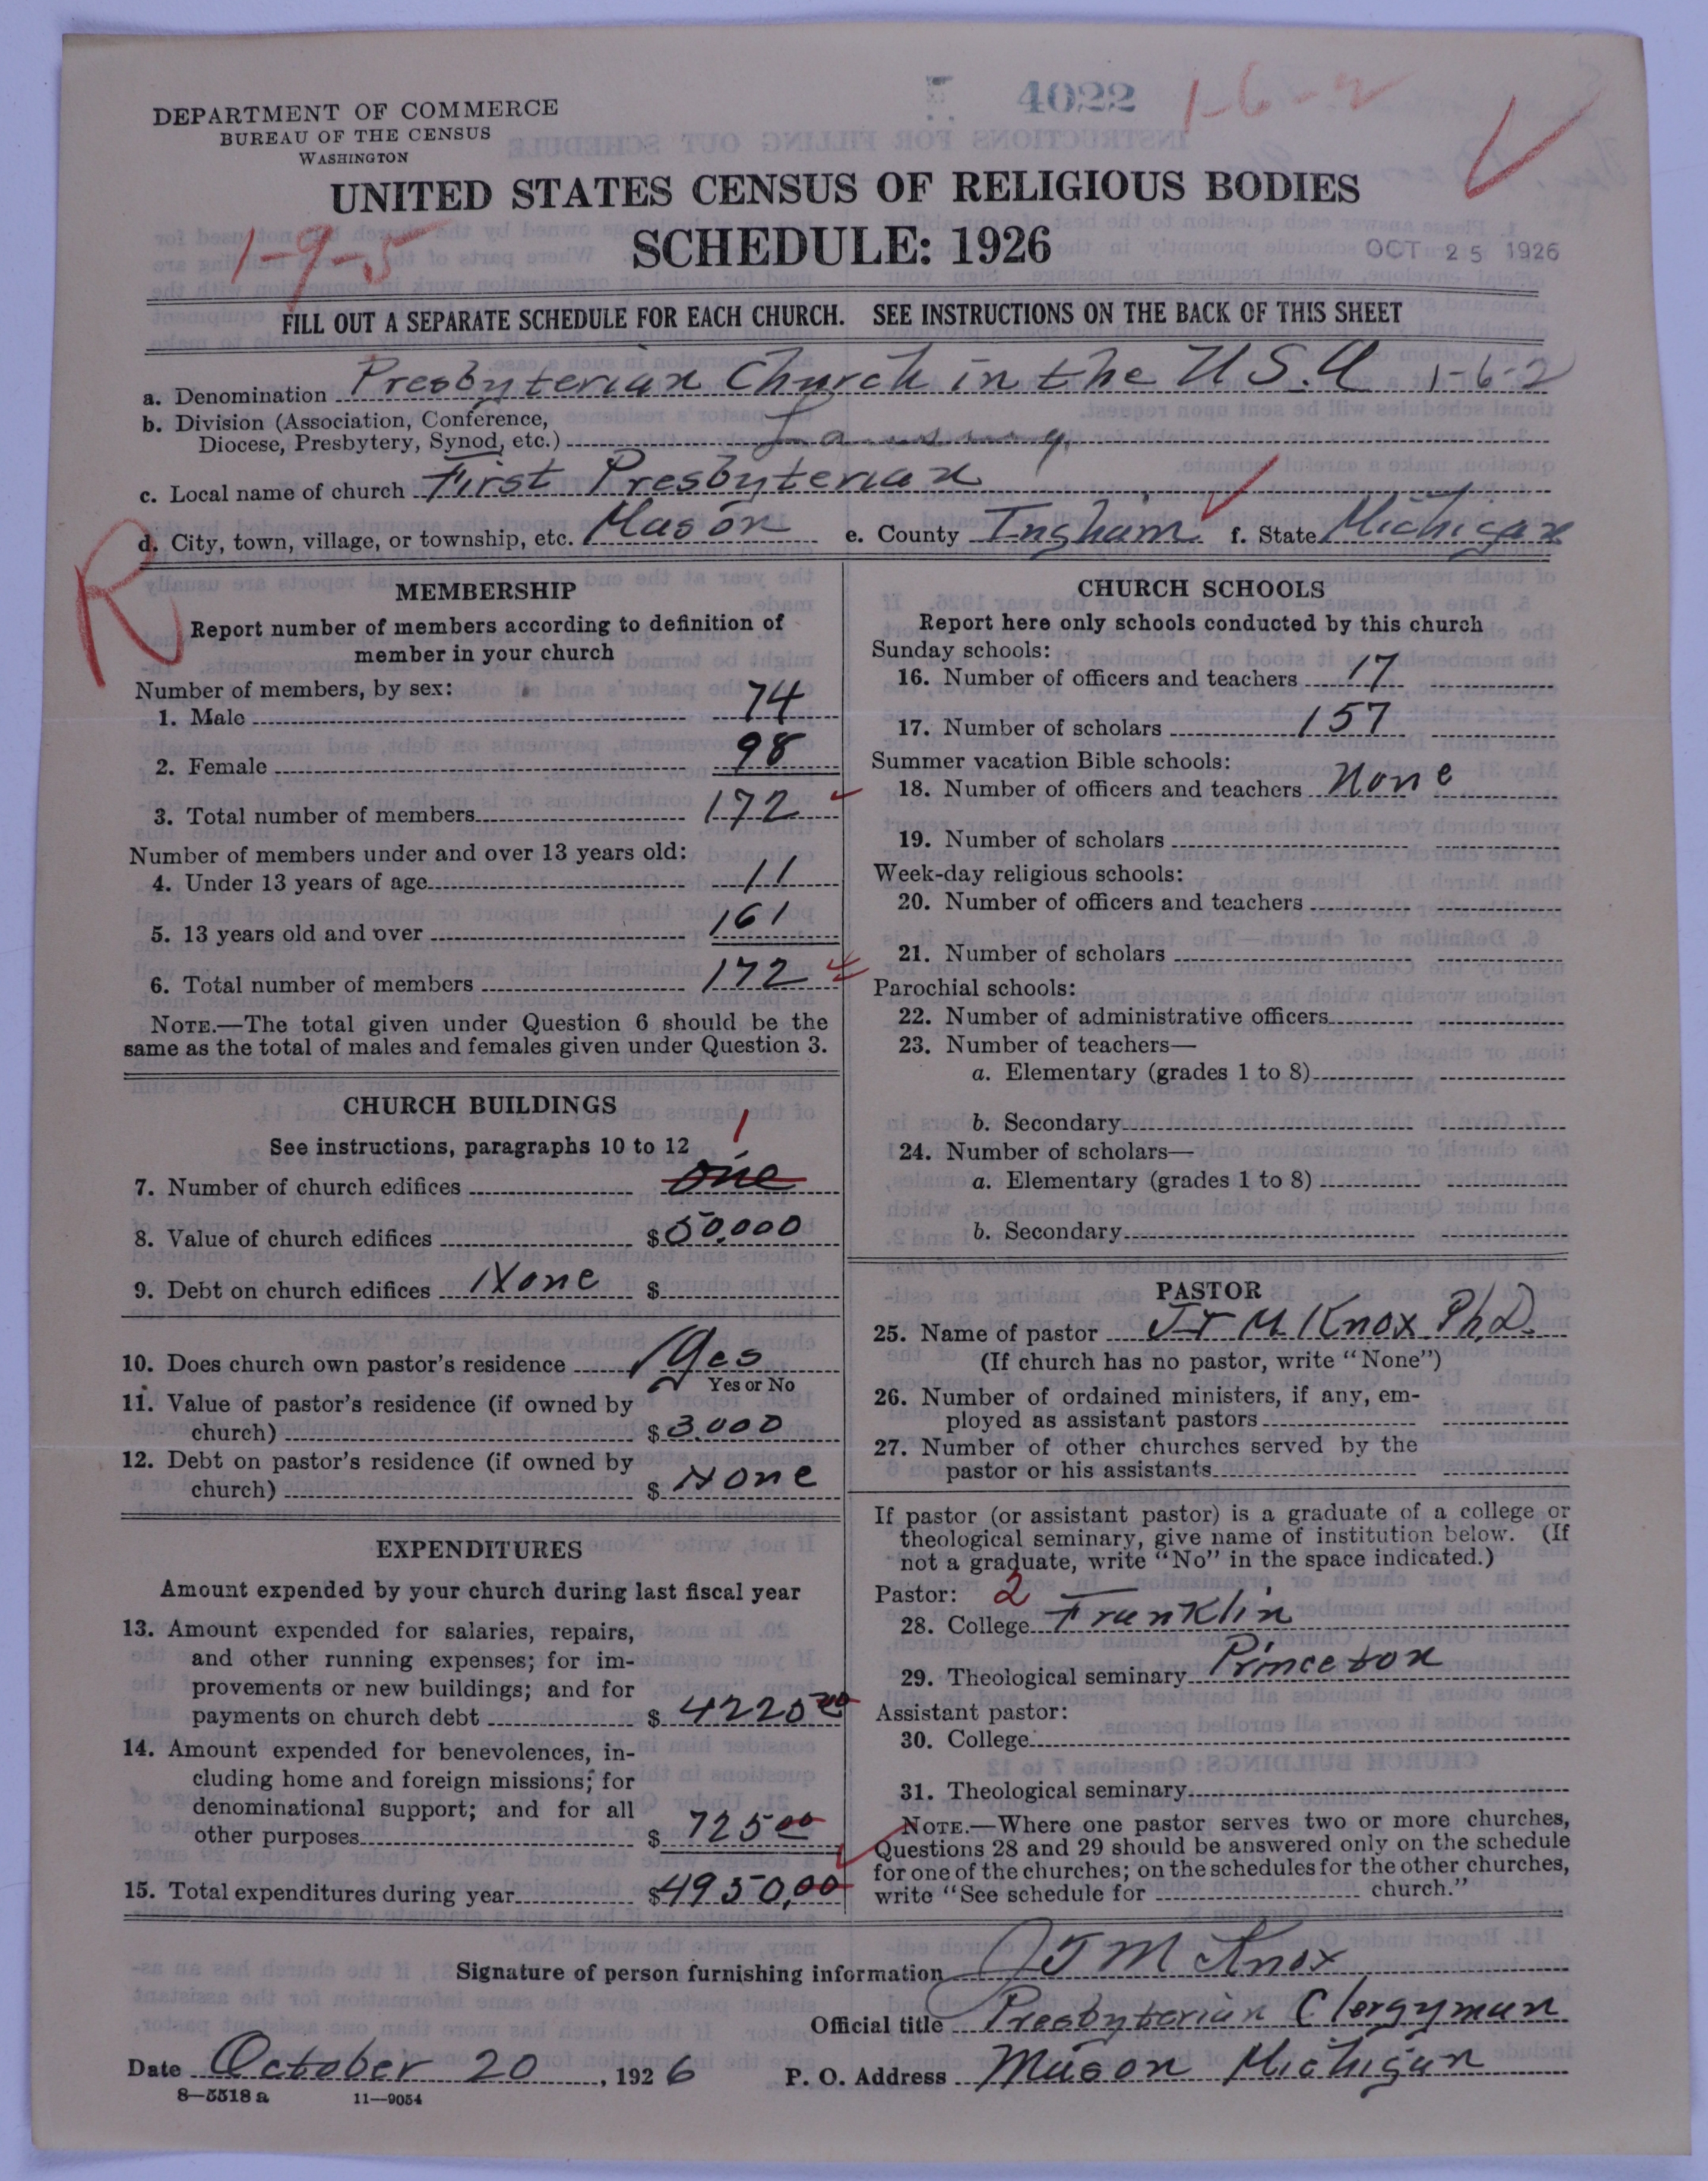 4022 1-6-2
DEPARTMENT OF COMMERCE
BUREAU OF THE CENSUS
WASHINGTON
UNITED STATES CENSUS OF RELIGIOUS BODIES
1-9-5
SCHEDULE: 1926
OCT 25 1926
FILL OUT A SEPARATE SCHEDULE FOR EACH CHURCH. SEE INSTRUCTIONS ON THE BACK OF THIS SHEET
a. Denomination Presbyterian Church in the U.S.A 1-6-2
b. Division (Association, Conference,
Diocese, Presbytery, Synod, etc.) Lansing
c. Local name of church First Presbyterian
d. City, town, village, or township, etc. Mason e. County Ingham f. State Michigan
R
MEMBERSHIP
Report number of members according to definition of
member in your church
Number of members, by sex:
1. Male 74
2. Female 98
3. Total number of members 172
Number of members under and over 13 years old:
4. Under 13 years of age 11
5. 13 years old and over 161
6. Total number of members 172
NOTE.—The total given under Question 6 should be the
same as the total of males and females given under Question 3.
CHURCH BUILDINGS
See instructions, paragraphs 10 to 12
1
7. Number of church edifices one
8. Value of church edifices $50,000
9. Debt on church edifices None $
10. Does church own pastor's residence Yes
Yes or No
11. Value of pastor's residence (if owned by
church) $3,000
12. Debt on pastor's residence (if owned by
church) $ None
EXPENDITURES
Amount expended by your church during last fiscal year
13. Amount expended for salaries, repairs,
and other running expenses; for im-
provements or new buildings; and for
payments on church debt $ 4225 00
14. Amount expended for benevolences, in-
cluding home and foreign missions; for
denominational support; and for all
other purposes $ 725 00
15. Total expenditures during year $4950,00
CHURCH SCHOOLS
Report here only schools conducted by this church
Sunday schools:
16. Number of officers and teachers 17
17. Number of scholars 157
Summer vacation Bible schools:
18. Number of officers and teachers None
19. Number of scholars
Week-day religious schools:
20. Number of officers and teachers
21. Number of scholars
Parochial schools:
22. Number of administrative officers
23. Number of teachers—
a. Elementary (grades 1 to 8)
b. Secondary
24. Number of scholars—
a. Elementary (grades 1 to 8)
b. Secondary
PASTOR
25. Name of pastor J T M Knox Ph.D.
(If church has no pastor, write "None")
26. Number of ordained ministers, if any, em-
ployed as assistant pastors
27. Number of other churches served by the
pastor or his assistants
If pastor (or assistant pastor) is a graduate of a college or
theological seminary, give name of institution below. (If
not a graduate, write "No" in the space indicated.)
Pastor: 2
28. College Franklin
29. Theological seminary Princeton
Assistant pastor:
30. College
31. Theological seminary
NOTE.—Where one pastor serves two or more churches,
Questions 28 and 29 should be answered only on the schedule
for one of the churches; on the schedules for the other churches,
write "See schedule for church."
Signature of person furnishing information J T M Knox
Official title Presbyterian Clergyman
Date October 20, 1926 P. O. Address Mason Michigan
8—5518 a 11—9054